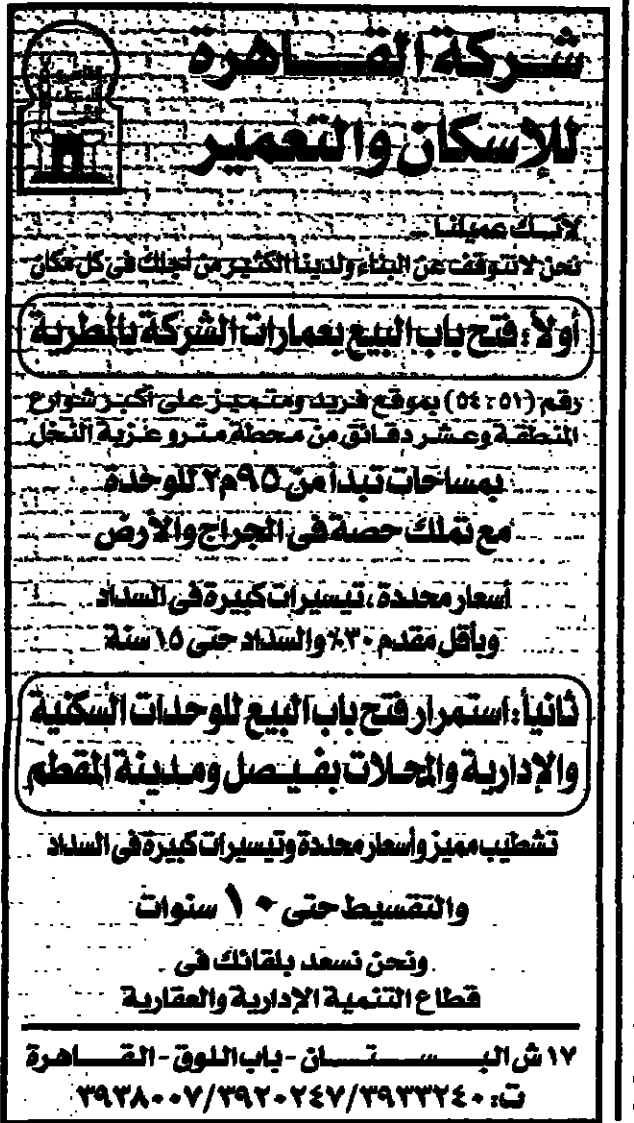 شركة القاهرة
للإسكان والتعمير
لأنك عميلنا ..
نحن لا نتوقف عن البناء ولدينا الكثير من أجلك فى كل مكان
أولاً: فتح باب البيع بعمارات الشركة بالمطرية
رقم (٥١، ٥٤) بموقع فريد ومتميز على أكبر شوارع
المنطقة وعشر دقائق من محطة مترو عزبة النخل
بمساحات تبدأ من ٩٥م٢ للوحدة
مع تملك حصة فى الجراج والأرض
أسعار محددة، تيسيرات كبيرة فى السداد
وبأقل مقدم ٣٠٪ والسداد حتى ١٥ سنة
ثانياً: استمرار فتح باب البيع للوحدات السكنية
والإدارية والمحلات بفيصل ومدينة المقطم
تشطيب مميز وأسعار محددة وتيسيرات كبيرة فى السداد
والتقسيط حتى ١٠ سنوات
ونحن نسعد بلقائك فى
قطاع التنمية الإدارية والعقارية
١٧ ش البستان - باب اللوق - القاهرة
ت: ٣٩٣٣٢٤٠/٣٩٢٠٢٤٧/٣٩٣٨٠٠٧